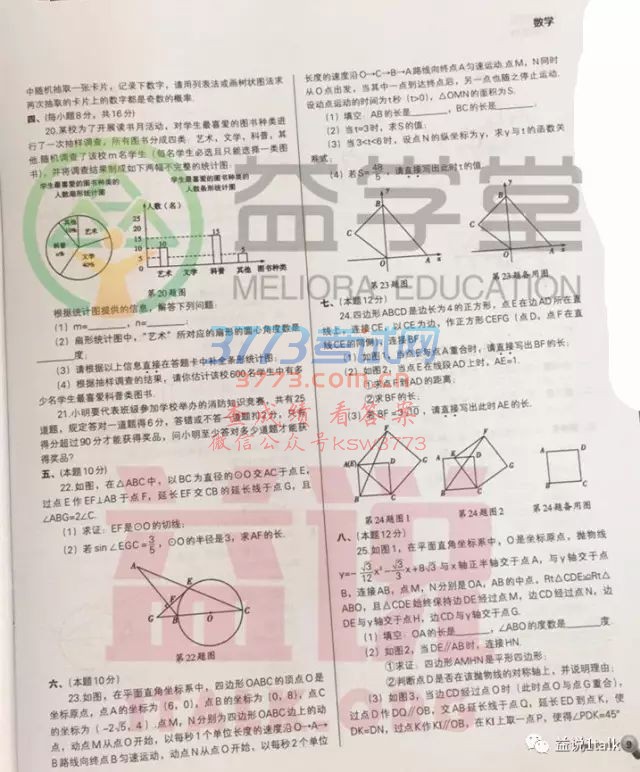 数学
中随机抽取一张卡片，记录下数字，请用列表法或画树状图法求
两次抽取的卡片上的数字都是奇数的概率.
四、(每小题8分，共16分)
20.某校为了开展读书月活动，对学生最喜爱的图书种类进
行了一次抽样调查，所有图书分成四类：艺术，文学，科普，其
他.随机调查了该校m名学生（每名学生必选且只能选择一类图
书），并将调查结果制成如下两幅不完整的统计图：
学生最喜爱的图书种类的
人数扇形统计图
学生最喜爱的图书种类的
人数条形统计图
其他
10%
艺术
科普
n%
文学
40%
人数（名）
25
20
15
10
5
0
10
15
5
艺术 文学 科普 其他 图书种类
第20题图
根据统计图提供的信息，解答下列问题：
(1) m=______，n=______；
(2) 扇形统计图中，“艺术”所对应的扇形的圆心角度数是
______度；
(3) 请根据以上信息直接在答题卡中补全条形统计图；
(4) 根据抽样调查的结果，请你估计该校600名学生中有多
少名学生最喜爱科普类图书.
21.小明要代表班级参加学校举办的消防知识竞赛，共有25
道题，规定答对一道题得6分，答错或不答一道题扣2分，只有
得分超过90分才能获得奖品，问小明至少答对多少道题才能获
得奖品？
五、(本题10分)
22.如图，在△ABC中，以BC为直径的⊙O交AC于点E，
过点E作EF⊥AB于点F，延长EF交CB的延长线于点G，且
∠ABG=2∠C.
(1) 求证：EF是⊙O的切线；
(2) 若sin∠EGC=3/5，⊙O的半径是3，求AF的长.
A
E
F
G
B
O
C
第22题图
六、(本题10分)
23.如图，在平面直角坐标系中，四边形OABC的顶点O是
坐标原点，点A的坐标为（6，0），点B的坐标为（0，8），点C
的坐标为（-2√5，4）.点M，N分别为四边形OABC边上的动
点，动点M从点O开始，以每秒1个单位长度的速度沿O→A→
B路线向终点B匀速运动，动点N从点O开始，以每秒2个单位
长度的速度沿O→C→B→A路线向终点A匀速运动.点M，N同时
从O点出发，当其中一点到达终点后，另一点也随之停止运动.
设动点运动的时间为t秒（t>0），△OMN的面积为S.
(1) 填空：AB的长是______，BC的长是______；
(2) 当t=3时，求S的值；
(3) 当3<t<6时，设点N的纵坐标为y，求y与t的函数关
系式；
(4) 若S=48/5，请直接写出此时t的值.
y
B
C
O
A x
第23题图
y
B
C
O
A x
第23题备用图
七、(本题12分)
24.四边形ABCD是边长为4的正方形，点E在边AD所在直
线上，连接CE，以CE为边，作正方形CEFG（点D，点F在直
线CE的同侧），连接BF.
(1) 如图1，当点E与点A重合时，请直接写出BF的长；
(2) 如图2，当点E在线段AD上时，AE=1.
①求点F到AD的距离；
②求BF的长.
(3) 若BF=3√10，请直接写出此时AE的长.
F
A(E)
D
G
B
C
第24题图1
F
A
E
D
G
B
C
第24题图2
A
D
B
C
第24题备用图
八、(本题12分)
25.如图1，在平面直角坐标系中，O是坐标原点，抛物线
y=-√3/12x²-√3/3x+8√3与x轴正半轴交于点A，与y轴交于点
B，连接AB，点M，N分别是OA，AB的中点，Rt△CDE≌Rt△
ABO，且△CDE始终保持边DE经过点M，边CD经过点N，边
DE与y轴交于点H，边CD与y轴交于点G.
(1) 填空：OA的长是______，∠ABO的度数是______度.
(2) 如图2，当DE∥AB时，连接HN.
①求证：四边形AMHN是平行四边形；
②判断点D是否在该抛物线的对称轴上，并说明理由；
(3) 如图3，当边CD经过点O时（此时点O与点G重合），
过点D作DQ∥OB，交AB延长线于点Q，延长ED到点K，使
DK=DN，过点K作KI∥OB，在KI上取一点P，使得∠PDK=45°
益学堂
MELIORA EDUCATION
3773考试网
3773.com.cn
查成绩 看答案
微信公众号ksw3773
益说
益说1talk
9